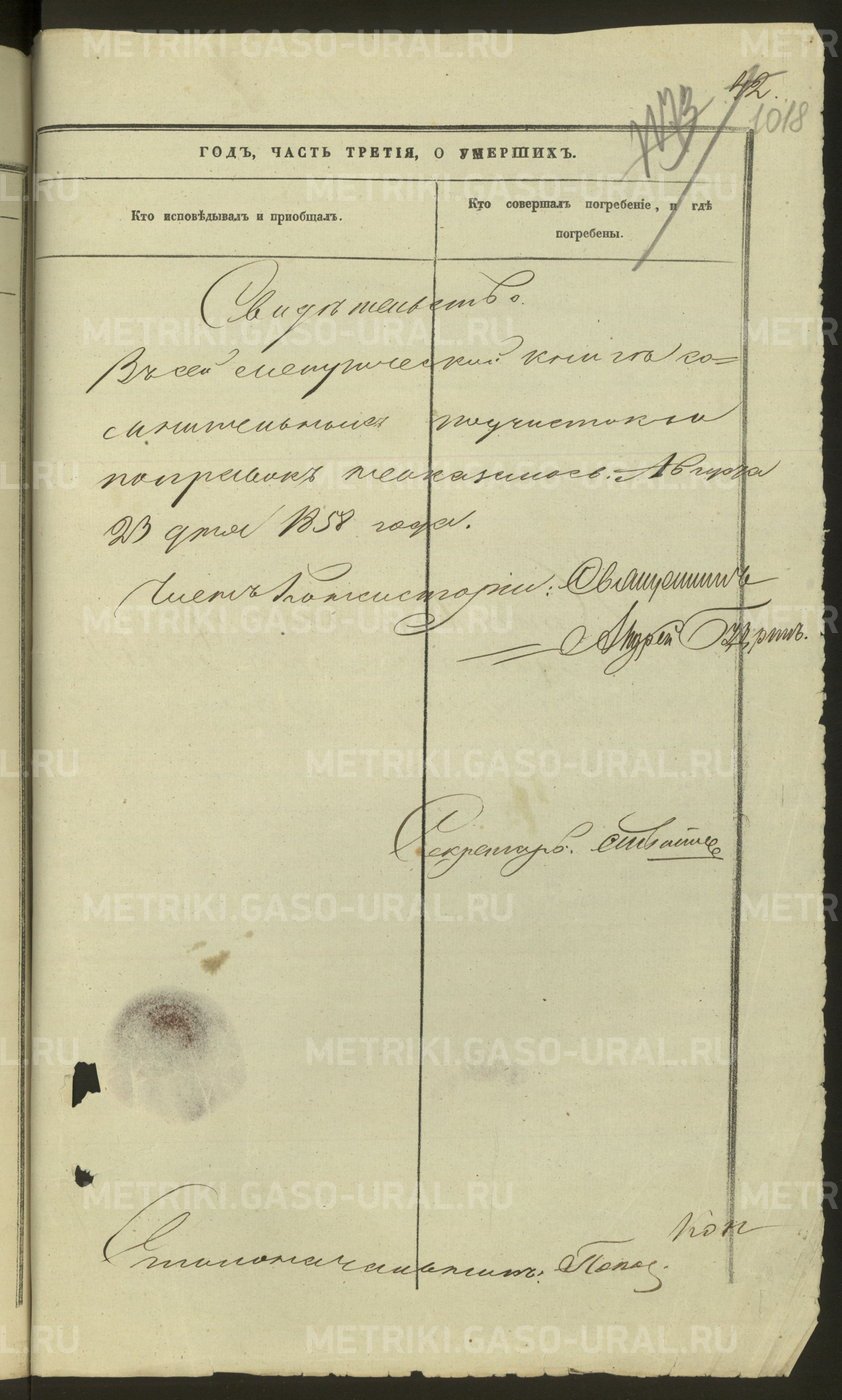 42.
1018
ГОДЪ, ЧАСТЬ ТРЕТІЯ, О УМЕРШИХЪ.
Кто исповѣдывалъ и пріобщалъ.
Кто совершалъ погребеніе, и гдѣ
погребены.
Свидѣтельство.
Въ сей метрической книгѣ со=
мнительныхъ подчистокъ и
поправокъ неоказалось. Августа
23 дня 1858 года.
Членъ Консисторіи: Священникъ
Андрей
Секретарь.
Столоначальникъ: Попов
METRIKI.GASO-URAL.RU